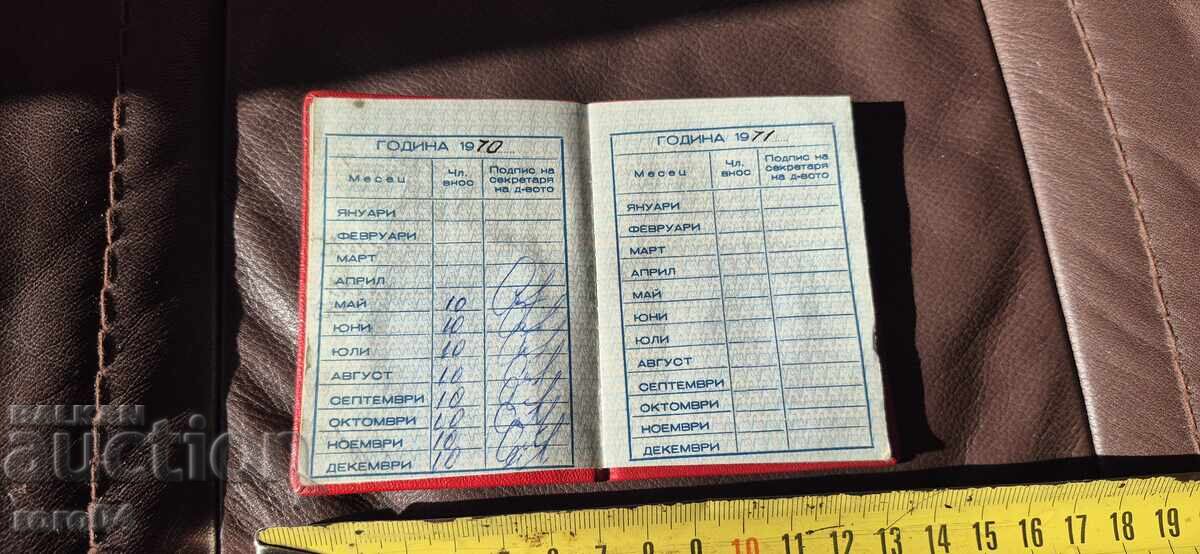 ГОДИНА 1970
Месец Чл. внос Подпис на секретаря на д-вото
ЯНУАРИ
ФЕВРУАРИ
МАРТ
АПРИЛ
МАЙ 10
ЮНИ 10
ЮЛИ 10
АВГУСТ 10
СЕПТЕМВРИ 10
ОКТОМВРИ 10
НОЕМВРИ 10
ДЕКЕМВРИ 10
ГОДИНА 1971
Месец Чл. внос Подпис на секретаря на д-вото
ЯНУАРИ
ФЕВРУАРИ
МАРТ
АПРИЛ
МАЙ
ЮНИ
ЮЛИ
АВГУСТ
СЕПТЕМВРИ
ОКТОМВРИ
НОЕМВРИ
ДЕКЕМВРИ
BALKAN
auction
6 7 8 9 10 11 12 13 14 15 16 17 18 19